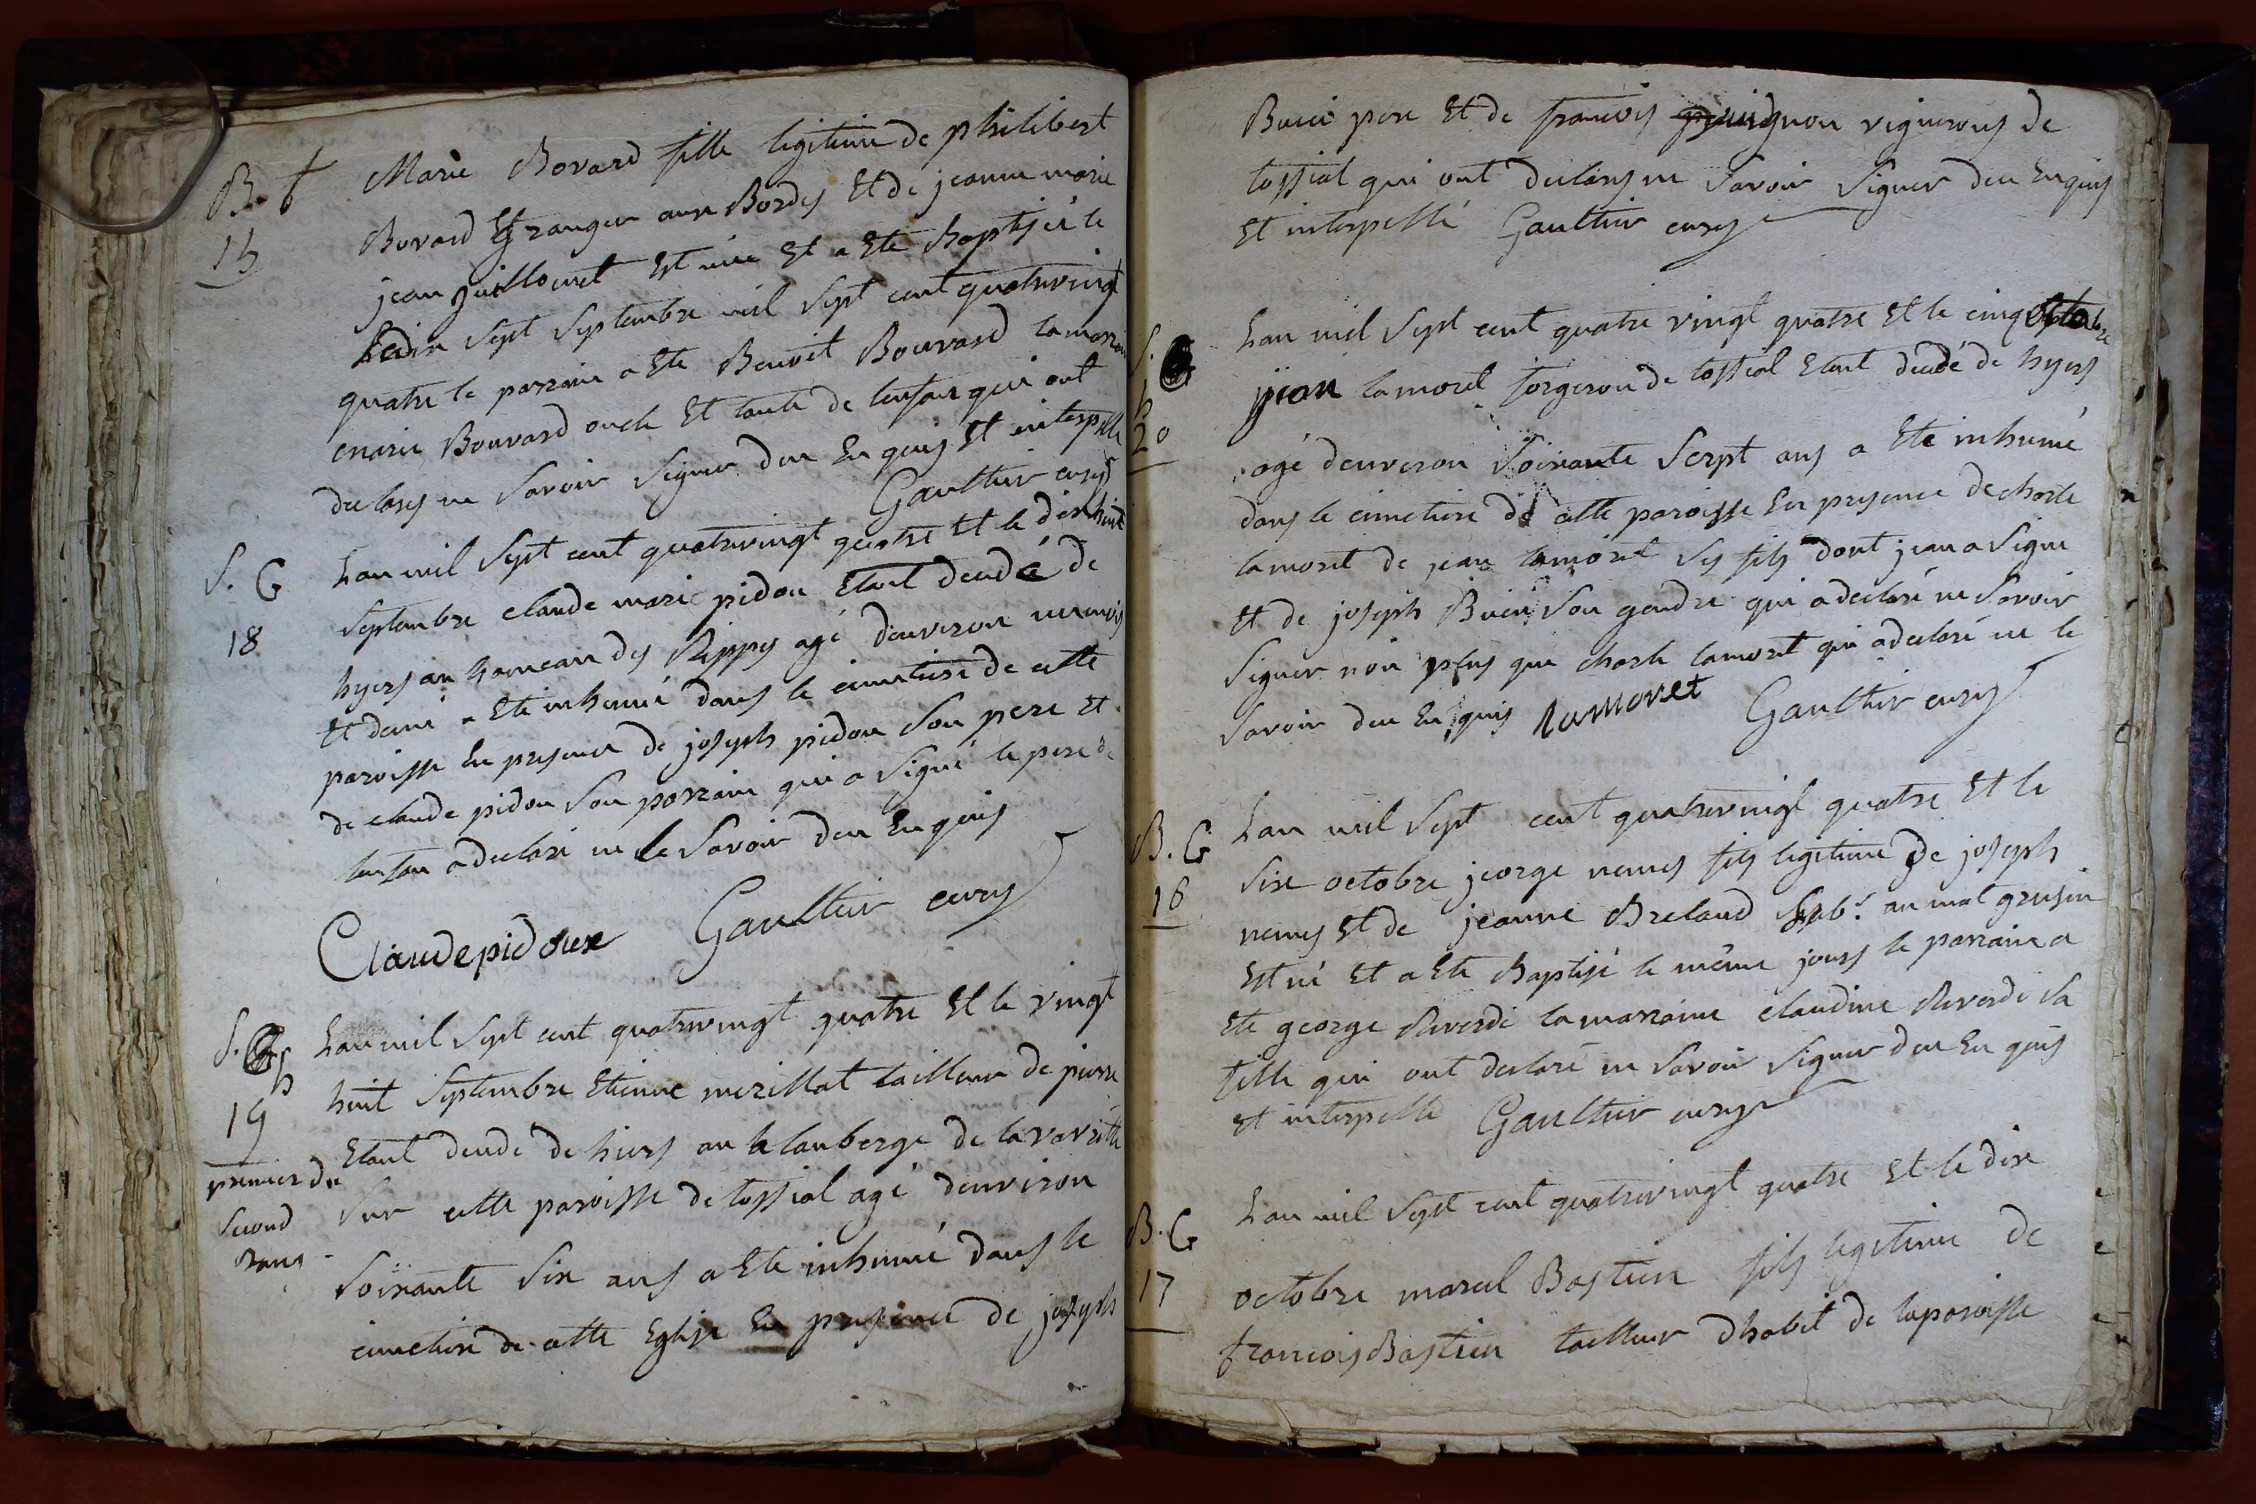 B. f Marie Bovard fille legitime de philibert
15
Bovard Et granger aux Bordes Et de jeanne marie
jean guillomet Est née Et a Ete Baptisée le
dix Sept Septembre mil Sept cent quatrevingt
quatre le parrain a Ete Benoit Bouvard lamarraine
marie Bouvard oncle Et tante de lenfan qui ont
declarés ne Savoir Signer deu Enquis Et interpellé
Gaulthier curé
S. G Lan mil Sept cent quatrevingt quatre Et le dixhuit
18 Septembre claude marie pidou Etant decedé de
hyers au hameau des Rippes agé denviron neumois
Et demi a Ete inhumé dans le cimetiere de cette
paroisse En presence de joseph pidou Son pere Et
de claude pidou Son parrain qui a Signé le pere de
lenfan a declaré ne le Savoir deu Enquis
Claude pidoux Gaulthier curé
S. h Lan mil Sept cent quatrevingt quatre Et le vingt
19 huit Septembre Etienne merillat tailleur de pierre
Etant decede de hiers au lauberge de la vavrette
premier du
Second Sur cette paroisse de tossiat agé denviron
rang Soixante Six ans a Ete inhumé dans le
cimetiere de cette Eglise En presence de joseph
Buici pere Et de francois guignon vignerons de
tossiat qui ont declarés ne Savoir Signer deu Enquis
Et interpellé Gaulthier curé
S. h
20
Lan mil Sept cent quatre vingt quatre Et le cinq octobre
jean lamoret forgeron de tossiat Etant decedé de hyers
agé denveron Soixante Sept ans a Ete inhumé
dans le cimetiere de cette paroisse En presence de charle
lamoret de jean lamoret Ses fils dont jean a Signe
Et de joseph Buici Son gendre qui a declaré ne Savoir
Signer non plus que charle lamoret qui a declaré ne le
Savoir deu Enquis lamoret Gaulthier curé
B. G Lan mil Sept cent quatrevingt quatre Et le
16 Six octobre jeorge nemes fils legitime de joseph
nemes Et de jeanne Breland hab.t au mat grusin
Est né Et a Ete Baptisé le même jours le parrain a
Ete george Reverdi la marraine claudine Reverdi Sa
fille qui ont declaré ne Savoir Signer deu Enquis
Et interpellé Gaulthier curé
B. G Lan mil Sept cent quatrevingt quatre Et le dix
17 octobre marcel Bastien fils legitime de
francois Bastien tailleur dhabit de laparoisse